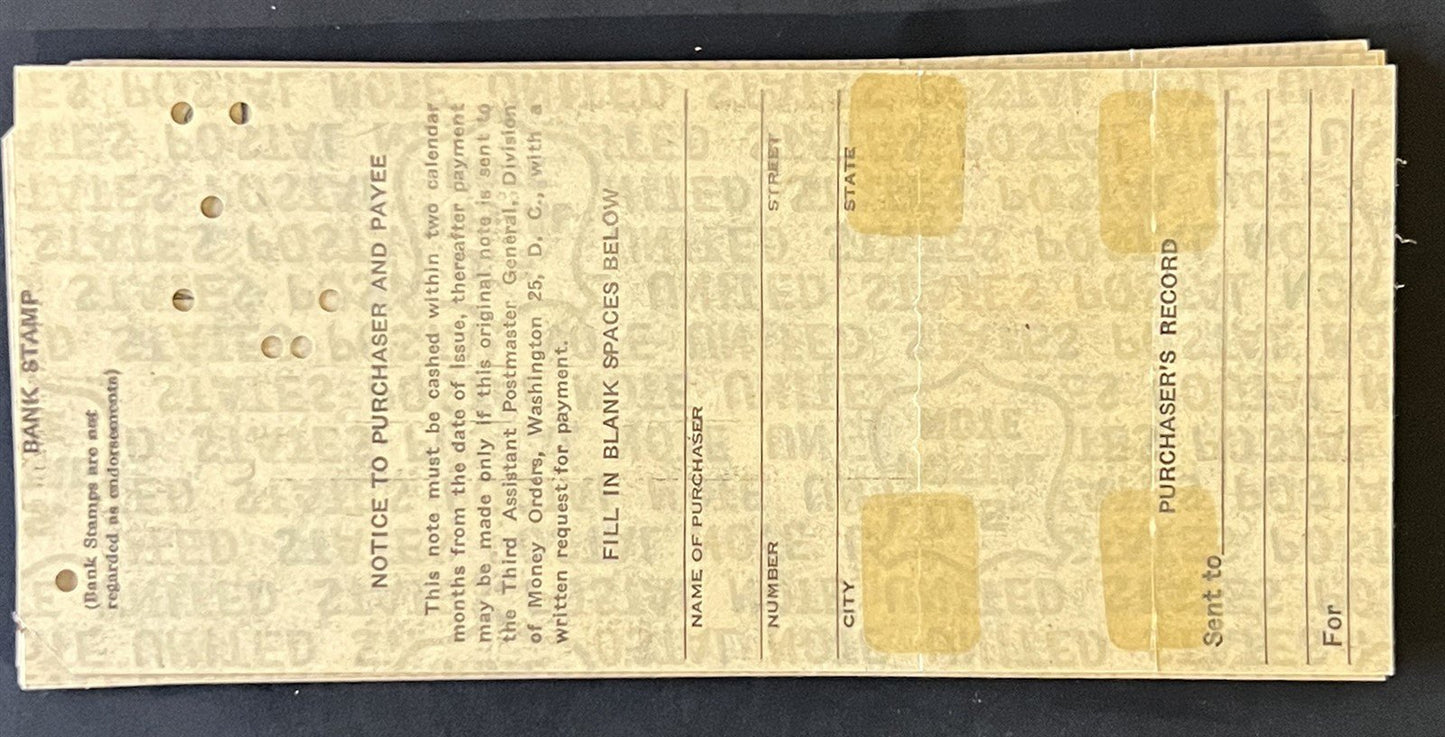 BANK STAMP
(Bank Stamps are not
regarded as endorsements)
NOTICE TO PURCHASER AND PAYEE
This note must be cashed within two calendar
months from the date of issue, thereafter payment
may be made only if this original note is sent to
the Third Assistant Postmaster General, Division
of Money Orders, Washington 25, D. C., with a
written request for payment.
FILL IN BLANK SPACES BELOW
NAME OF PURCHASER
NUMBER STREET
CITY STATE
PURCHASER'S RECORD
Sent to
For